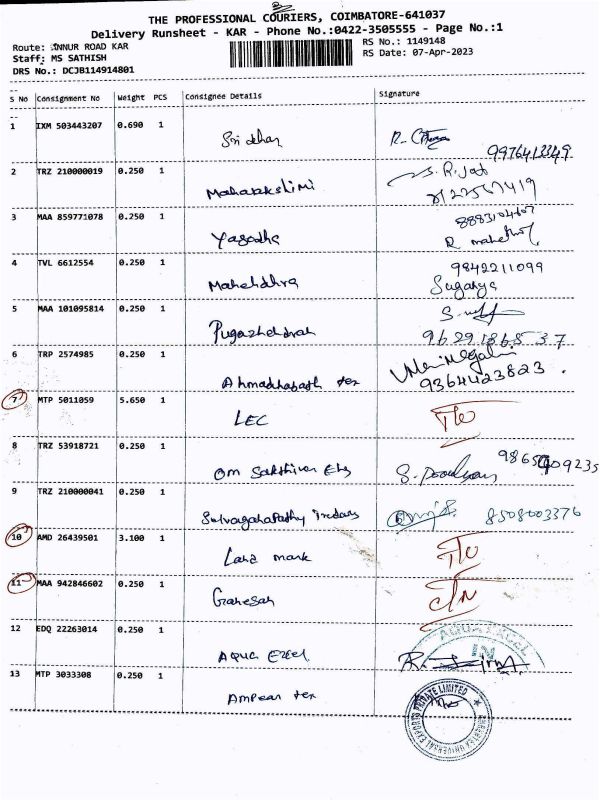 THE PROFESSIONAL COURIERS, COIMBATORE-641037
Delivery Runsheet - KAR - Phone No.:0422-3505555 - Page No.:1
Route: ANNUR ROAD KAR
RS No.: 1149148
Staff: MS SATHISH
RS Date: 07-Apr-2023
DRS No.: DCJB114914801
S No Consignment No Weight PCS Consignee Details Signature
1 IXM 503443207 0.690 1 Sridhar
9976413349
2 TRZ 210000019 0.250 1 Maharakshimi
3 MAA 859771078 0.250 1 Yasodha
4 TVL 6612554 0.250 1 Mahehdhra 9842211099
Suganya
5 MAA 101095814 0.250 1
6 TRP 2574985 0.250 1
9364423823
7 MTP 5011059 5.650 1 LEC
8 TRZ 53918721 0.250 1 Om Sakthivel
9 TRZ 210000041 0.250 1 8508003376
10 AMD 26439501 3.100 1 Lara mark
11 MAA 942846602 0.250 1 Ganesan
12 EDQ 22263014 0.250 1 AQUA Excel
AQUA EXCEL
13 MTP 3033308 0.250 1 Ampean tex